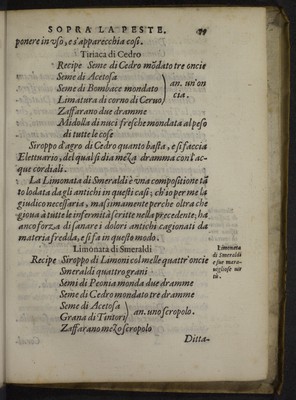 SOPRA LA PESTE. 79
ponere in vso, e s'apparecchia così.
Tiriaca di Cedro
Recipe Seme di Cedro mõdato tre oncie
Seme di Acetosa
Seme di Bombace mondato
an. un'on
cia.
Limatura di corno di Ceruo
Zaffarano due dramme
Midolla di nuci fresche mondata al peso
di tutte le cose
Siroppo d'agro di Cedro quanto basta, e si faccia
Elettuario, del qual si dia meza dramma con l'ac-
que cordiali.
La Limonata di Smeraldi è vna compositione tã
to lodata dagli antichi in questi casi; ch'io per me la
giudico necessaria, massimamente perche oltra che
gioua à tutte le infermità scritte nella precedente; ha
anco forza di sanare i dolori antichi cagionati da
materia fredda, e si fa in questo modo.
Limonata di Smeraldi
Limonata
di Smeraldi
e sue mara-
uigliose uir
tù.
Recipe Siroppo di Limoni col melle quattr'oncie
Smeraldi quattro grani
Semi di Peonia monda due dramme
Seme di Cedro mondato tre dramme
Seme di Acetosa
Grana di Tintori
an. uno scropolo.
Zaffarano mezo scropolo
Ditta-